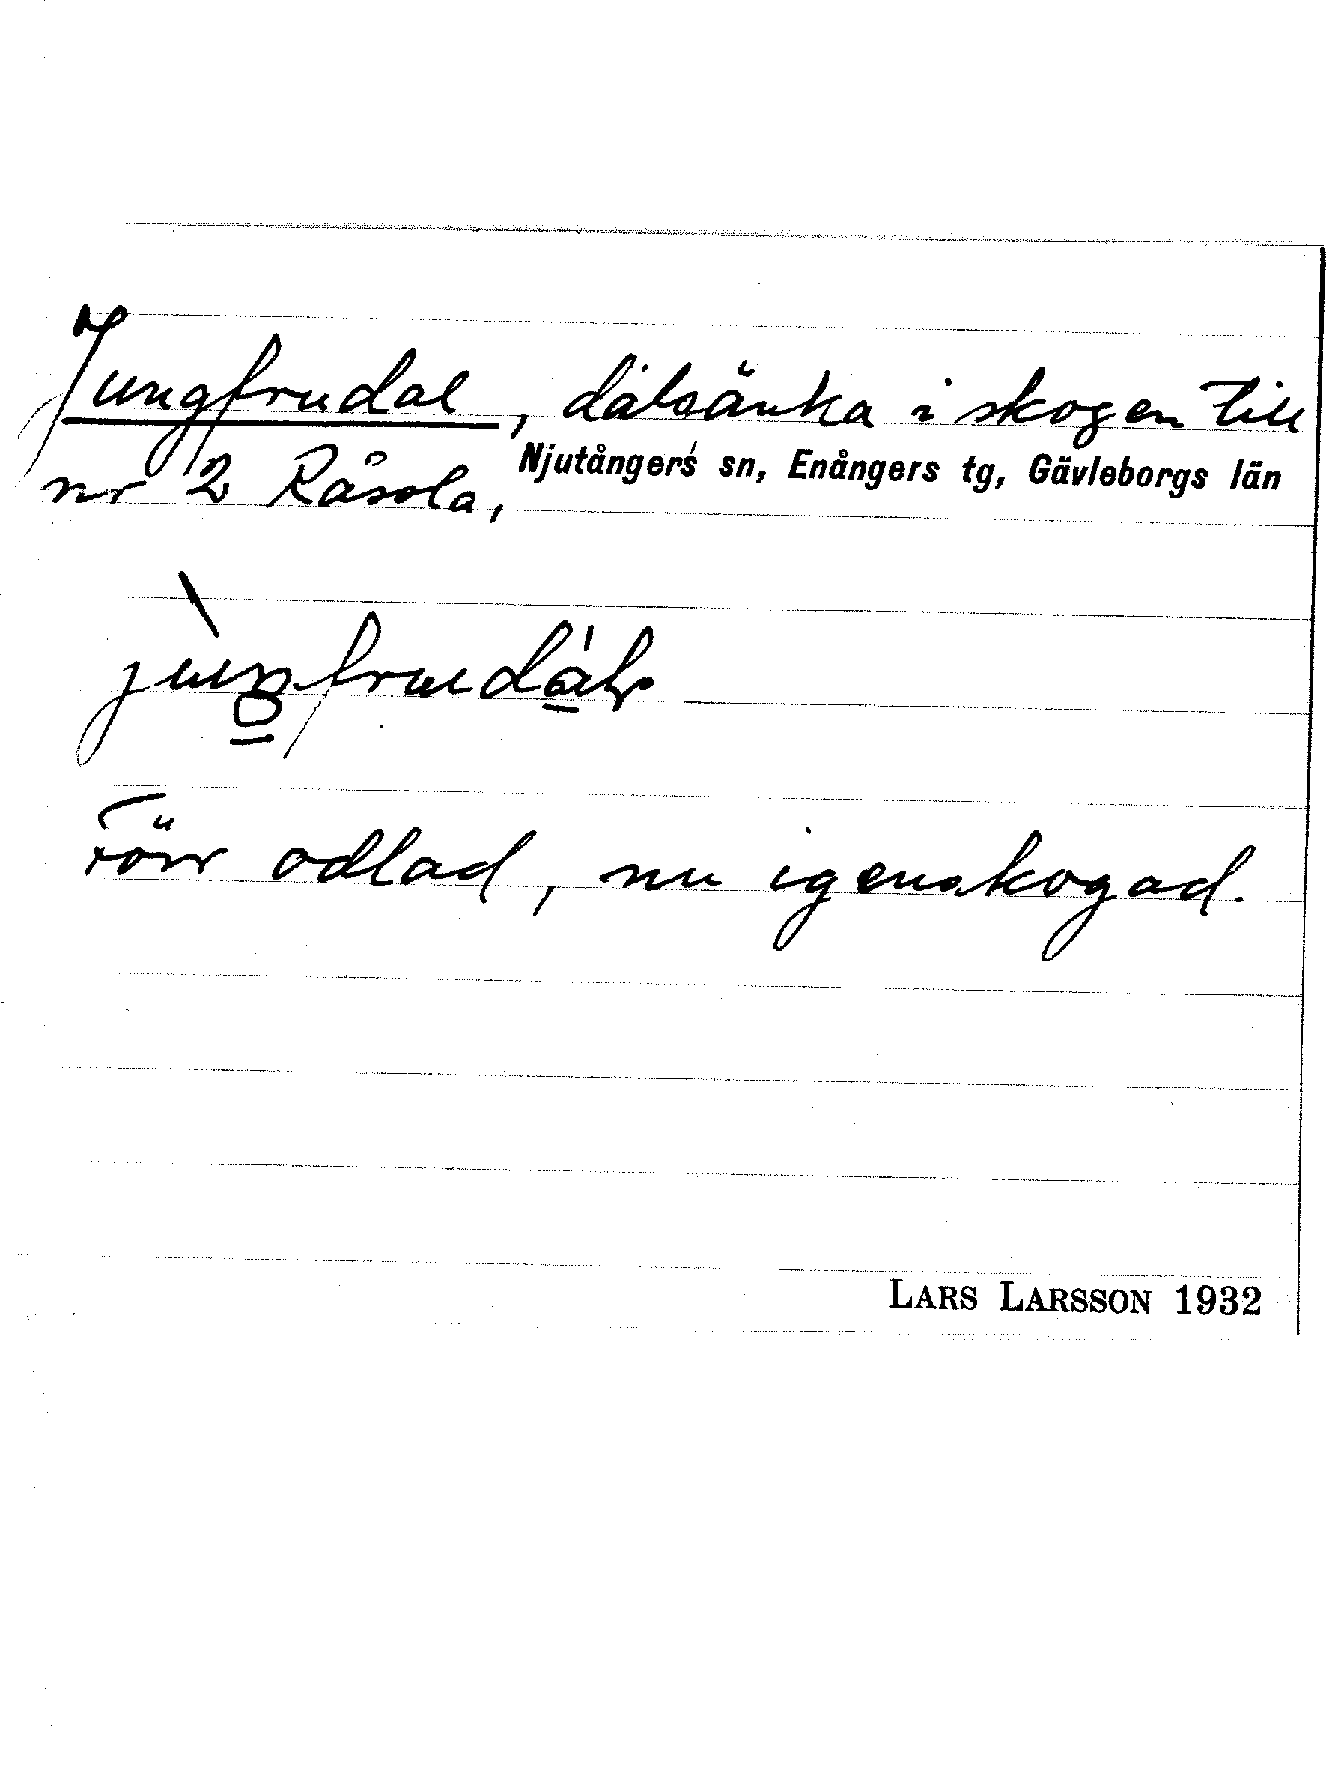 Jungfrudal, dalsänka i skogen till
nr 2 Råsola, Njutångers sn, Enångers tg, Gävleborgs län
Förr odlad, nu igenskogad.
LARS LARSSON 1932